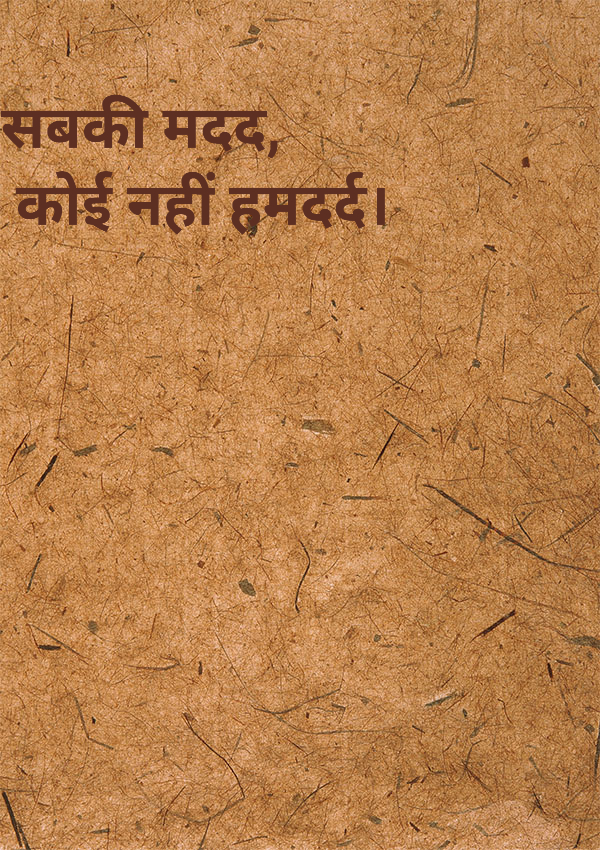 सबकी मदद,
कोई नहीं हमदर्द।